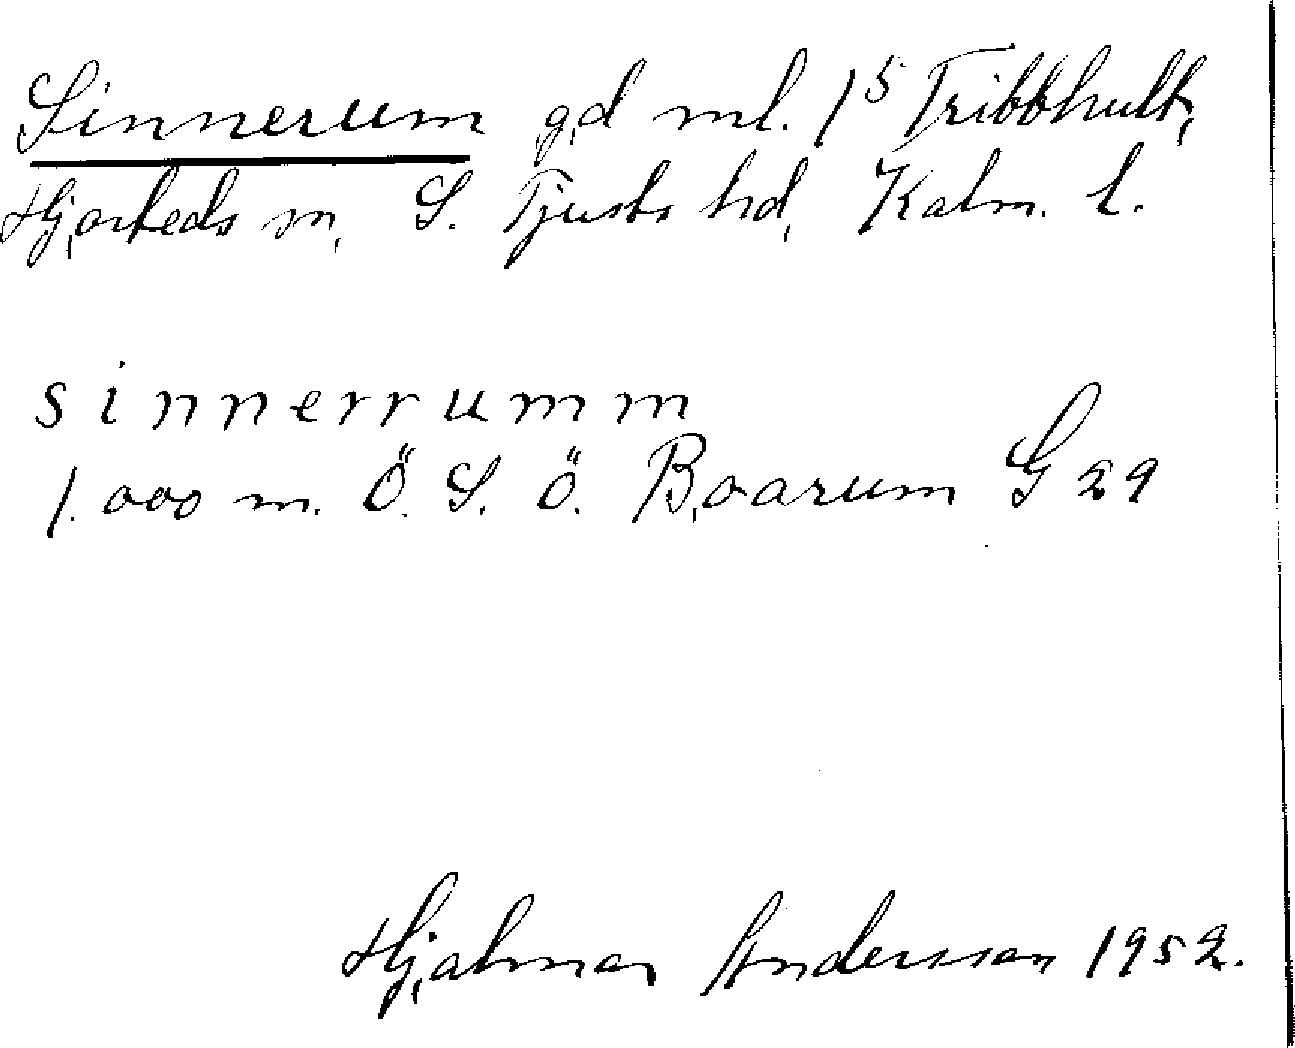 Sinnerum gd ml. 1⁵ Tribbhult,
Hjorteds sn, S. Tjusts hd, Kalm. l.
sinnerrumm
1.000 m. Ö. S. Ö. Boarum G 29
Hjalmar Andersson 1952.